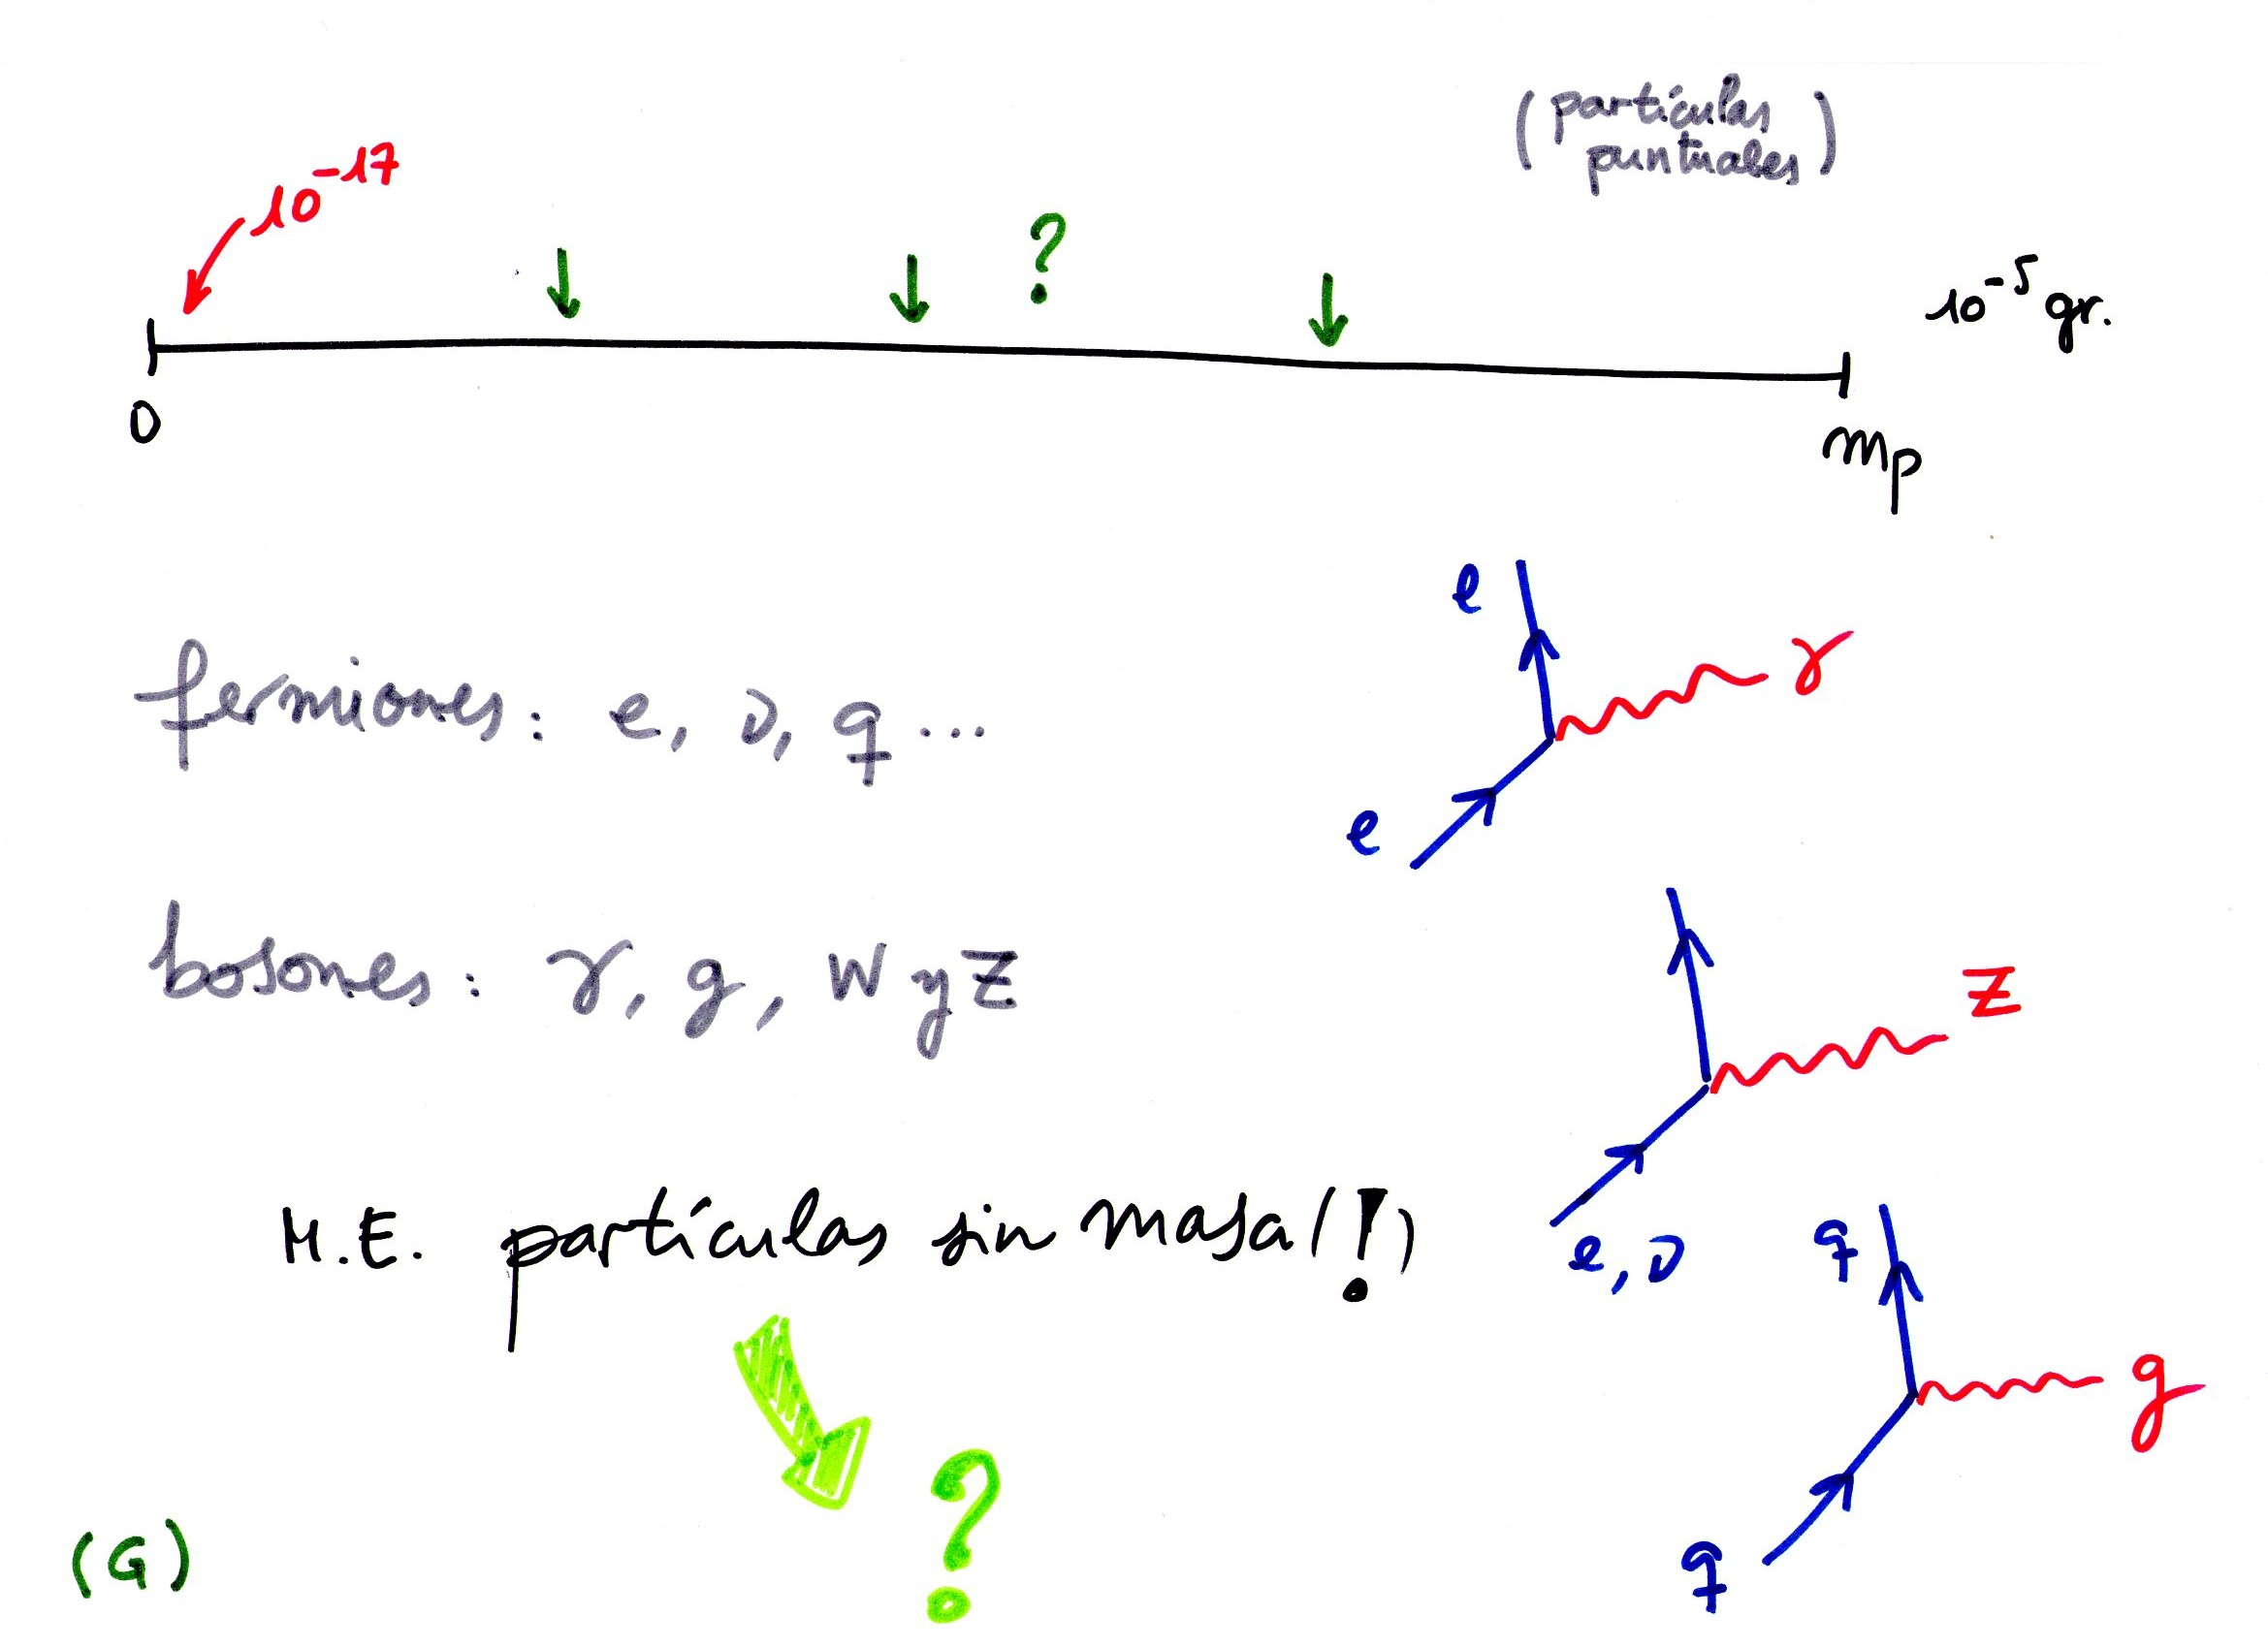 (partículas
puntuales)
10⁻¹⁷
?
10⁻⁵ gr.
0
mp
e
γ
fermiones: e, ν, q ...
e
bosones: γ, g, W y Z
Z
M.E. partículas sin masa(!)
e, ν
q
g
?
(G)
q